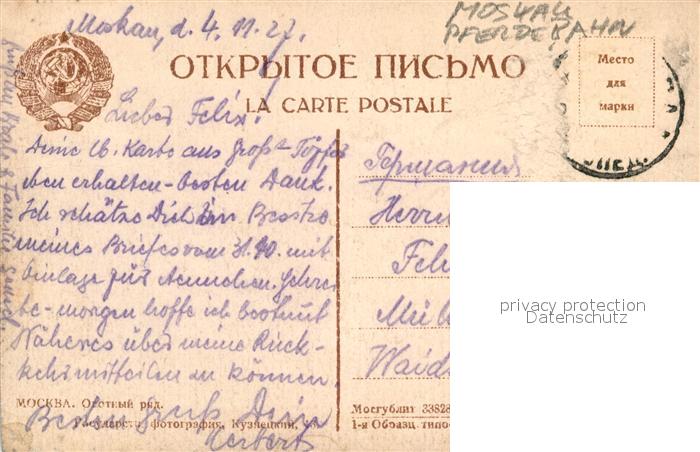 Moskau, d. 4. 11. 27.
MOSKAU
PFERDEBAHN
ОТКРЫТОЕ ПИСЬМО
LA CARTE POSTALE
Место
для
марки
Lieber Felix!
Deine lb. Karte aus Groß
eben erhalten - besten Dank.
Ich schätze Dich im Besitze
meines Briefes vom 31.10. mit
Einlage für Aennchen. Schrei
be - morgen hoffe ich bestimmt
Näheres über meine Rück-
kehr mitteilen zu können.
Besten Gruß Dein
Herbert
Германия
Herrn
Feli
Mühl
Waids
МОСКВА. Охотный ряд.
Государств. фотография, Кузнецкий,
Мосгублит 33828
1-я Образц. типо
privacy protection
Datenschutz